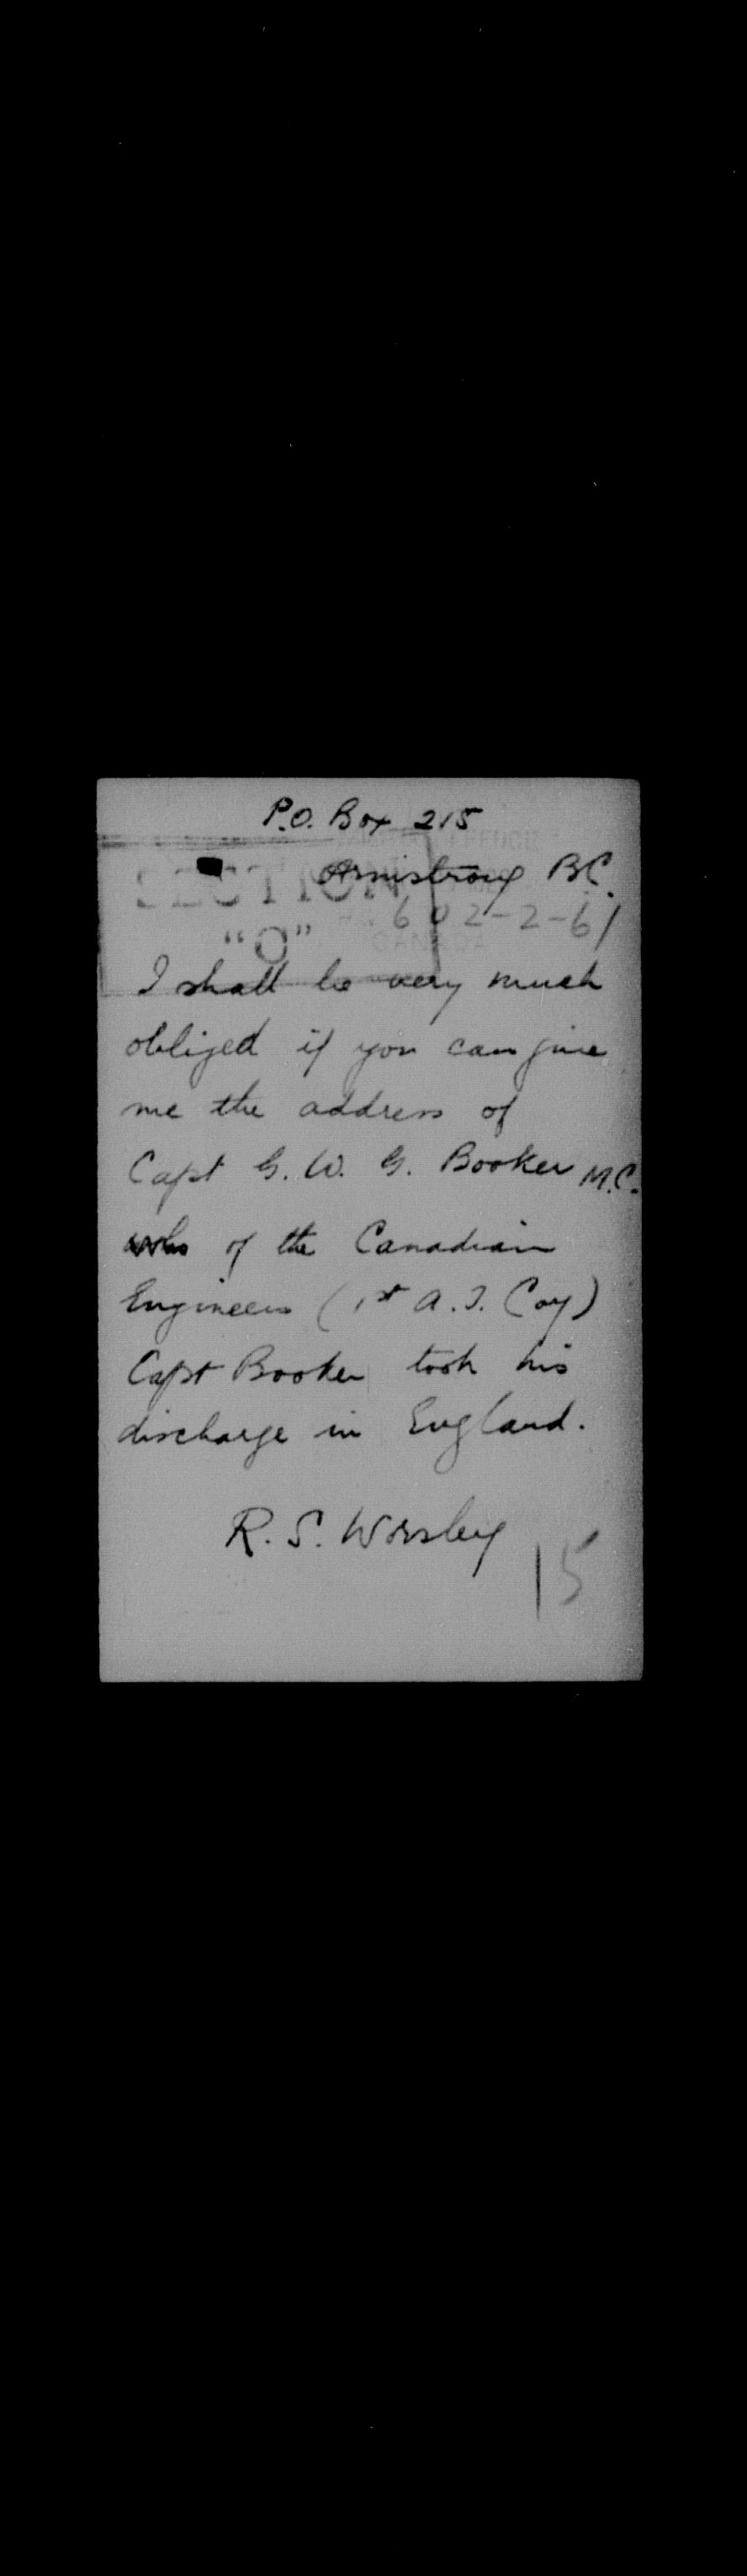 P.O. Box 215
Armstrong BC.
SECTION
"O"
602-2-61
CANADA
I shall be very much
obliged if you can give
me the address of
Capt G. W. G. Booker M.C.
of the Canadian
Engineers (1st A.T. Coy)
Capt Booker took his
discharge in England.
R. S. Worsley
15